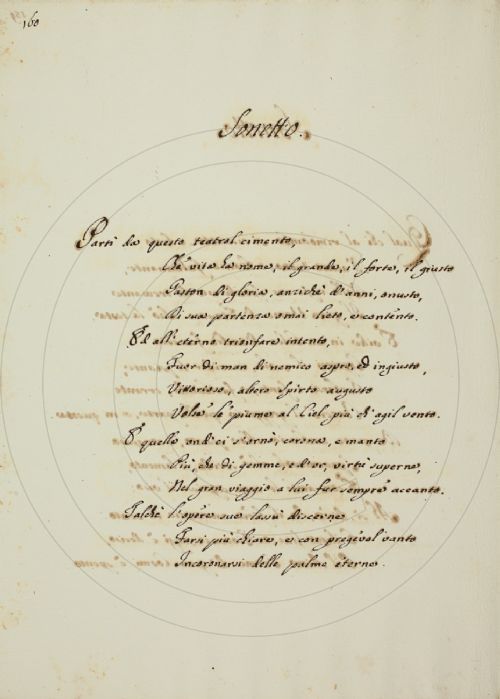 160
Sonetto.
Partì da questo teatral cimento,
Ch'è vita ha nome, il grande, il forte, il giusto
Gaston di gloria, anzichè d'anni, onusto,
Di sua partenza omai lieto, e contento.
Ed all'eterno trionfare intento,
Fuor di man di nemico aspro, ed ingiusto,
Vittorioso, altero spirto augusto
Volse le piume al Ciel più ch'agil vento.
E quelle ond'ei s'ornò, corona, e manto
Più, che di gemme, e d'or, virtù superne,
Nel gran viaggio a lui fur sempre accanto.
Talchè l'opere sue lassù discerne
Farsi più chiare, e con pregevol vanto
Incoronarsi delle palme eterne.